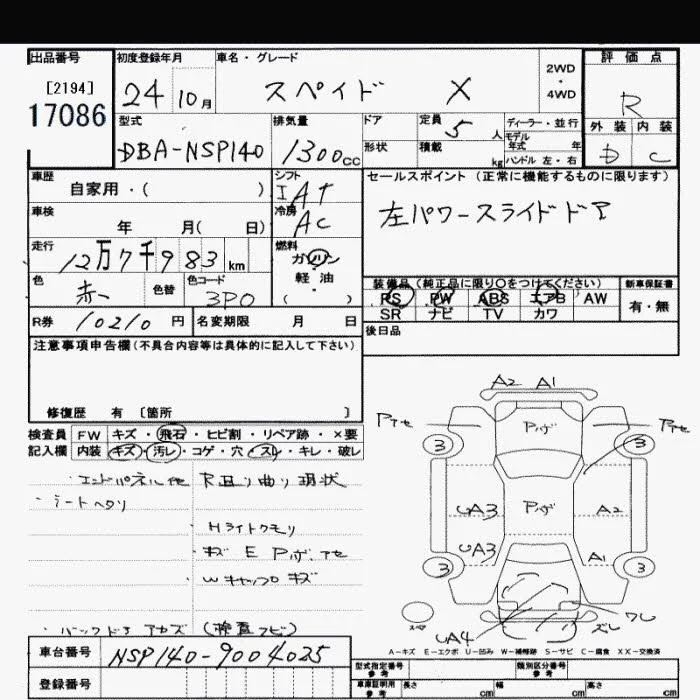 出品番号
[2194]
17086
初度登録年月
24 10月
車名・グレード
スペイド X
2WD
・
4WD
評価点
R
外装 内装
D C
型式
DBA-NSP140
排気量
1300cc
ドア
形状
定員
5人
積載
kg
ディーラー・並行
モデル
年式 年
ハンドル 左・右
車歴
自家用・( )
シフト
IAT
冷房
AC
車検
年 月( 日)
走行
12万7千983km
燃料
ガソリン
軽・油
( )
色
赤
色替
色コード
3P0
R券 10210円
名変期限 月 日
セールスポイント(正常に機能するものに限ります)
左パワースライドドア
装備品(純正品に限り○をつけてください)
PS PW ABS エアB AW
SR ナビ TV カワ
新車保証書
有・無
後日品
注意事項申告欄(不具合内容等は具体的に記入して下さい)
修復歴 有 [箇所 ]
検査員
記入欄
FW キズ・飛石・ヒビ割・リペア跡・×要
内装 キズ・汚レ・コゲ・穴・スレ・キレ・破レ
エンドパネル他 R凹リ曲り 現状
・シートヘタリ
・Hライトクモリ
・キズ E Pハゲ、アセ
・Wキャップ キズ
・バックドア アカズ (検査 サビ)
A2 A1
Pアセ
Pハゲ
Pアセ
3
3
Pハゲ
UA3
A2
UA3
A1
3
3
スペア
UA4
ワレ
ズレ
A-キズ E-エクボ U-凹み W-補修跡 S-サビ C-腐食 XX-交換済
車台番号
NSP140-9004025
登録番号
型式指定番号
参考
類別区分番号
参考
車庫証明用
参考
長さ cm
幅 cm
高さ cm